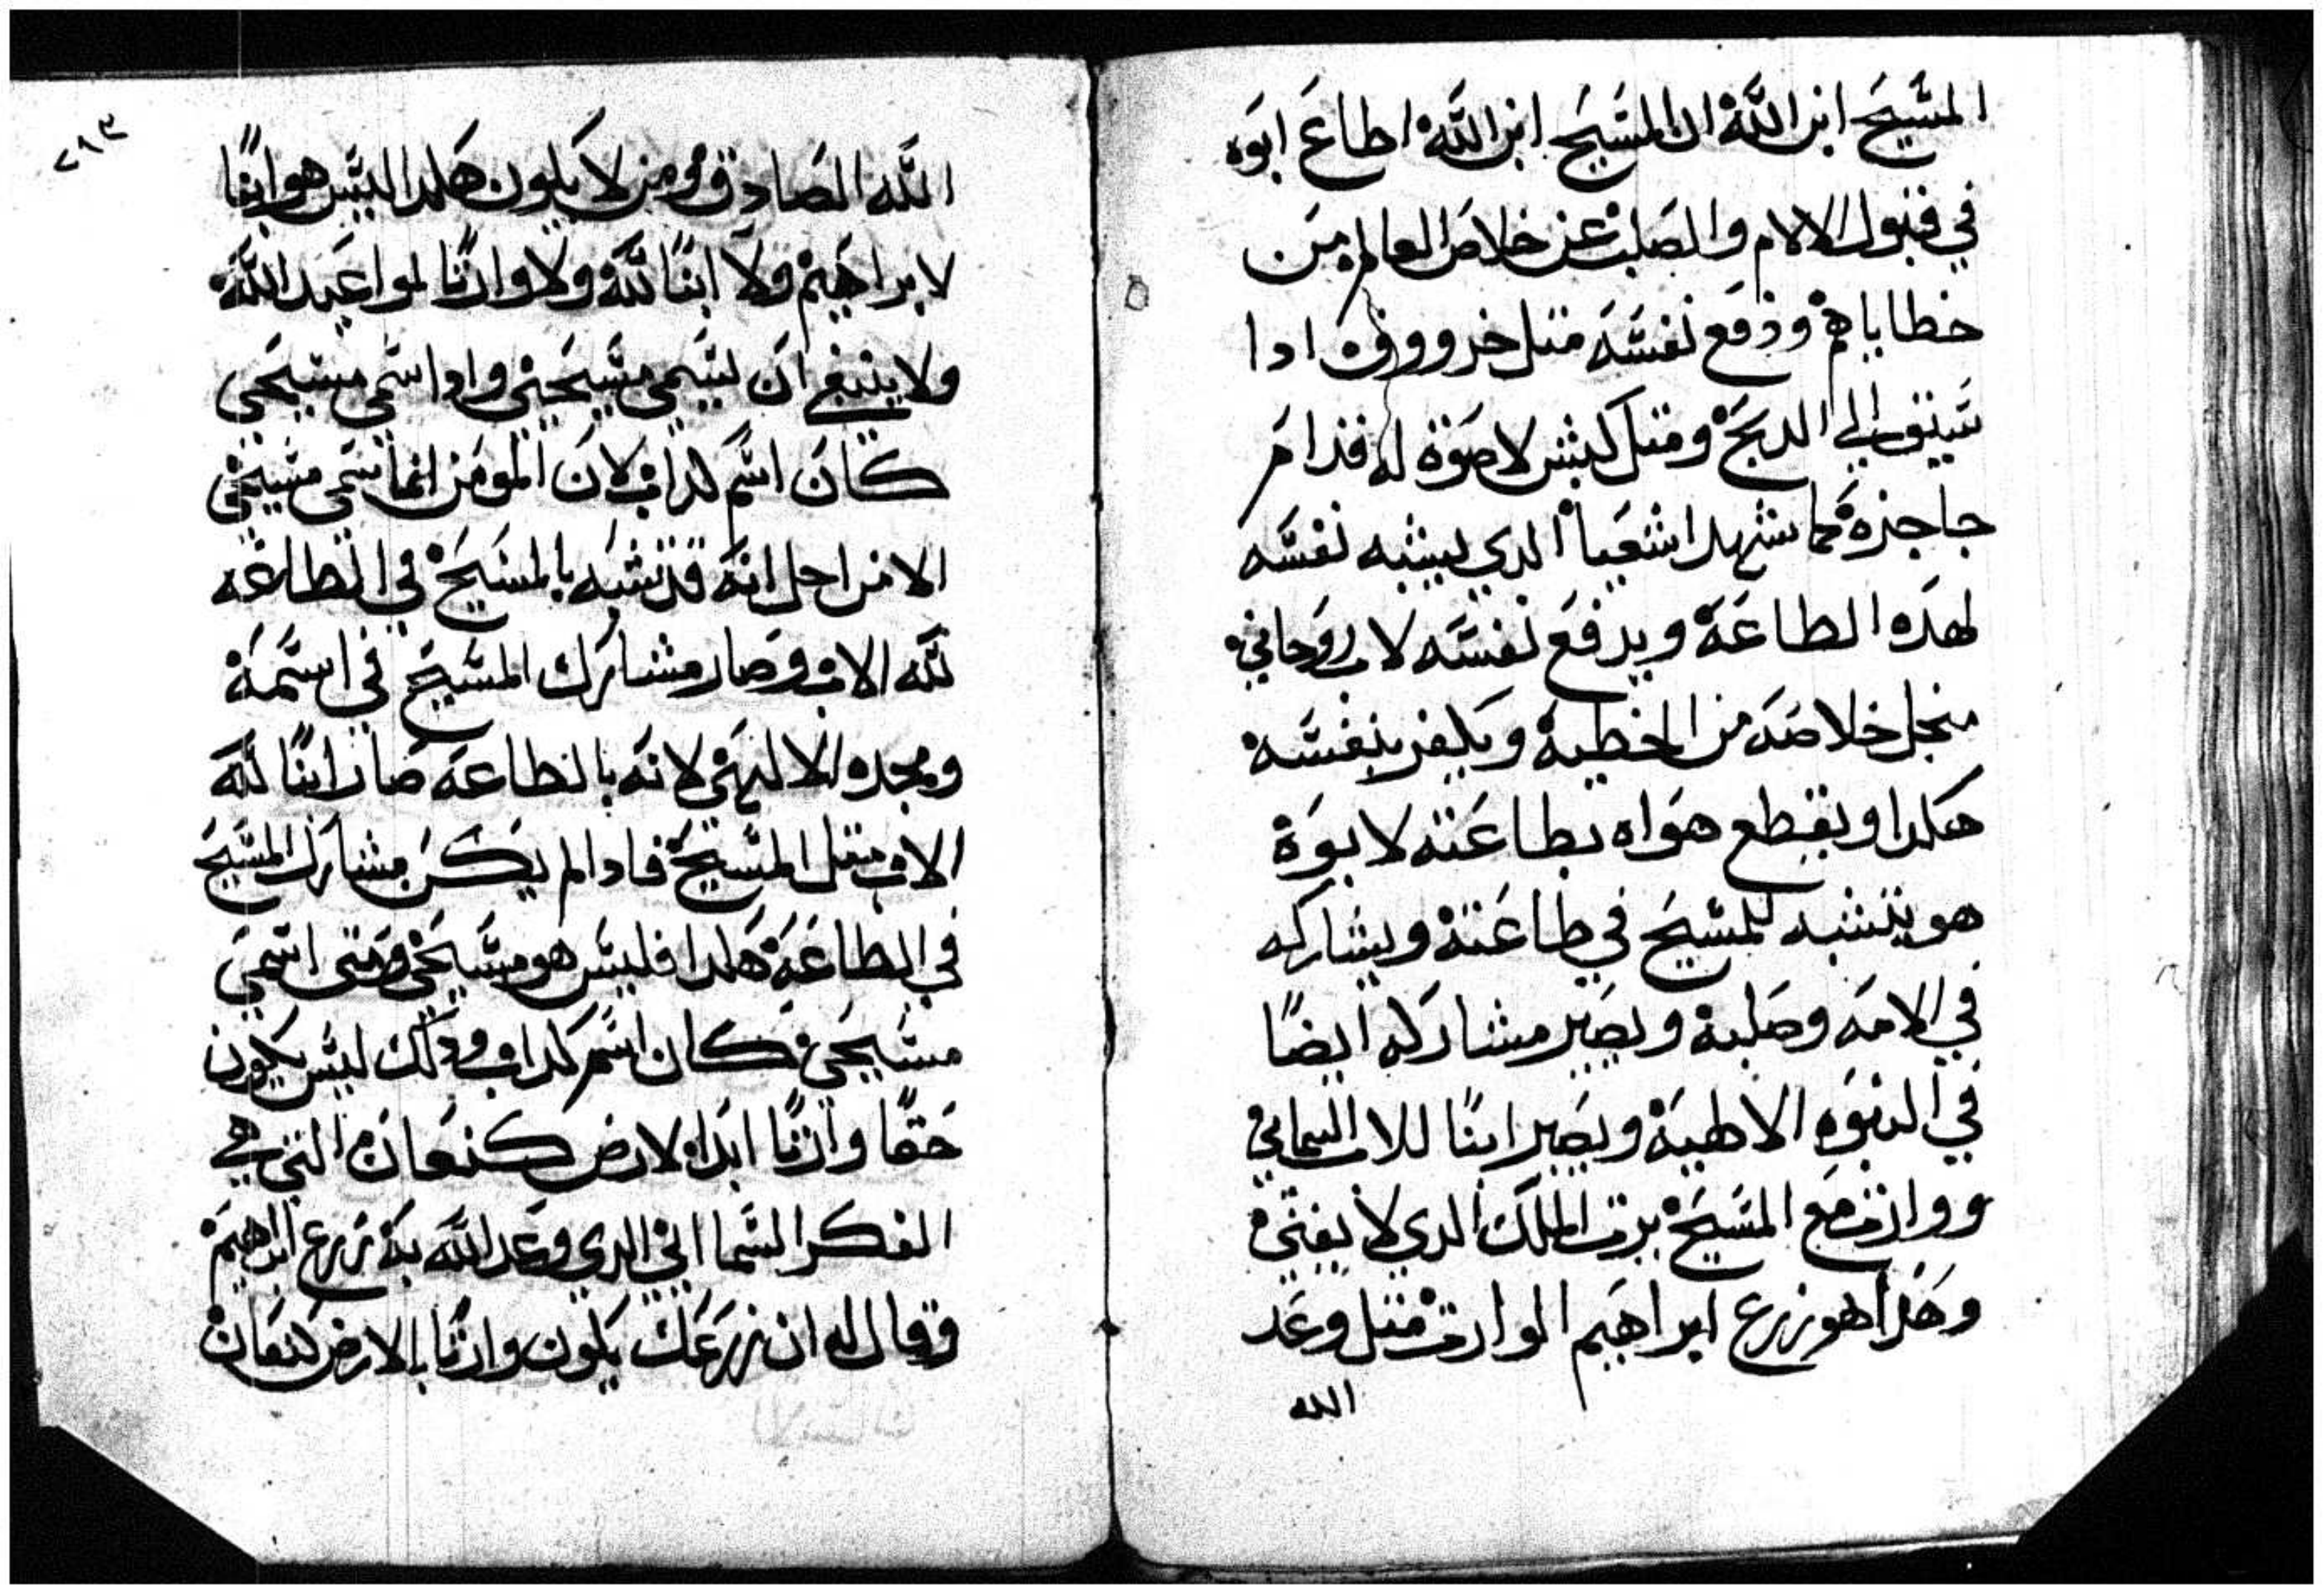 المسيح ابن الله ان المسيح ابن الله اطاع ابوه
في قبول الالام والصلب عن خلاص العالم من
خطاياهم ودفع نفسه متل خروف ادا
سيق الي الدبح ومتل كبش لا صوة له قدام
جاجزه كما شهد اشعيا الدي يشبه نفسه
لهده الطاعة ويدفع نفسه لاب روحاني
منجل خلاصه من الخطية ويكفر بنفسه
هكدا ويقطع هواه بطاعته لابوة
هو يتشبه للمسيح في طاعته ويشاركه
في الامه وصلبه ويصير مشاركه ايضًا
في البنوه الالاهية ويصير ابنًا للاب السماني
ووارت مع المسيح يرت الملك الدي لا يفنى
وهدا هو زرع ابراهيم الوارت متل وعد
الله
٢١٣
الله الصادق ومن لا يكون هكدا ليس هو ابنًا
لابراهيم ولا ابنًا لله ولا وارتًا لمواعيد الله
ولا ينبغي ان يسمي مسيحي وادا سمي مسيحي
كان اسم كداب لان المومن انما سمي مسيحي
الا من اجل انه قد تشبه بالمسيح في الطاعه
لله الاب وصار مشارك المسيح في اسمه
ومجده الالاهي لانه بالطاعة صار ابنًا لله
الاب متل المسيح فادا لم يكن مشارك المسيح
في الطاعة هكدا فليس هو مسيحي ومتى اسمي
مسيحي كان اسم كداب ودلك ليس يكون
حقًا وارتًا ابدا لارض كنعان التي هي
الفكر السمااني الدي وعد الله به زرع ابراهيم
وقال له ان زرعك يكون وارتًا بالارض كنعان